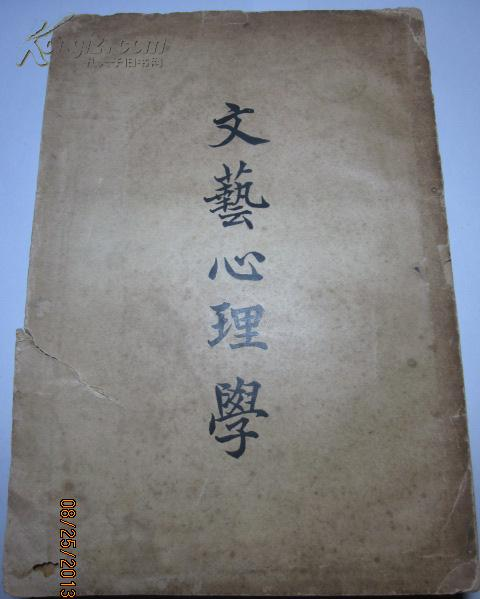 孔夫子旧书网
文藝心理學
08/25/2013